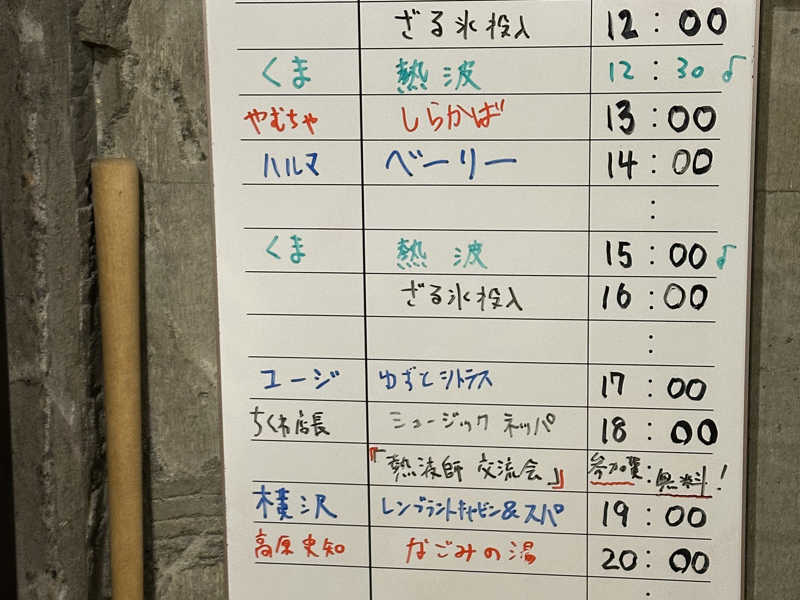 ざる氷投入 12:00
くま 熱波 12:30♪
やむちゃ しらかば 13:00
ハルマ ベーリー 14:00
:
くま 熱波 15:00♪
ざる氷投入 16:00
:
ユージ ゆずとシトラス 17:00
ちくわ店長 ミュージックネッパ 18:00
『熱波師 交流会』 参加費:無料!
横沢 レンブラントキャビン&スパ 19:00
高原史知 なごみの湯 20:00
: